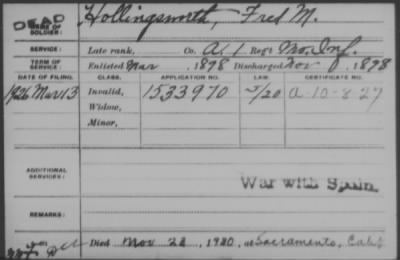 DEAD
NAME OF SOLDIER: Hollingsworth, Fred M.
SERVICE: Late rank, Co. A, 1 Reg't Mo. Inf.
TERM OF SERVICE: Enlisted Mar , 1898 Discharged Nov 8, 1898
DATE OF FILING. CLASS. APPLICATION NO. LAW. CERTIFICATE NO.
1926 Mar 13 Invalid, 1533970 5/20 A-10-8-27
Widow,
Minor,
ADDITIONAL SERVICES: War with Spain.
REMARKS:
Died Nov 22, 1930, at Sacramento, Calif